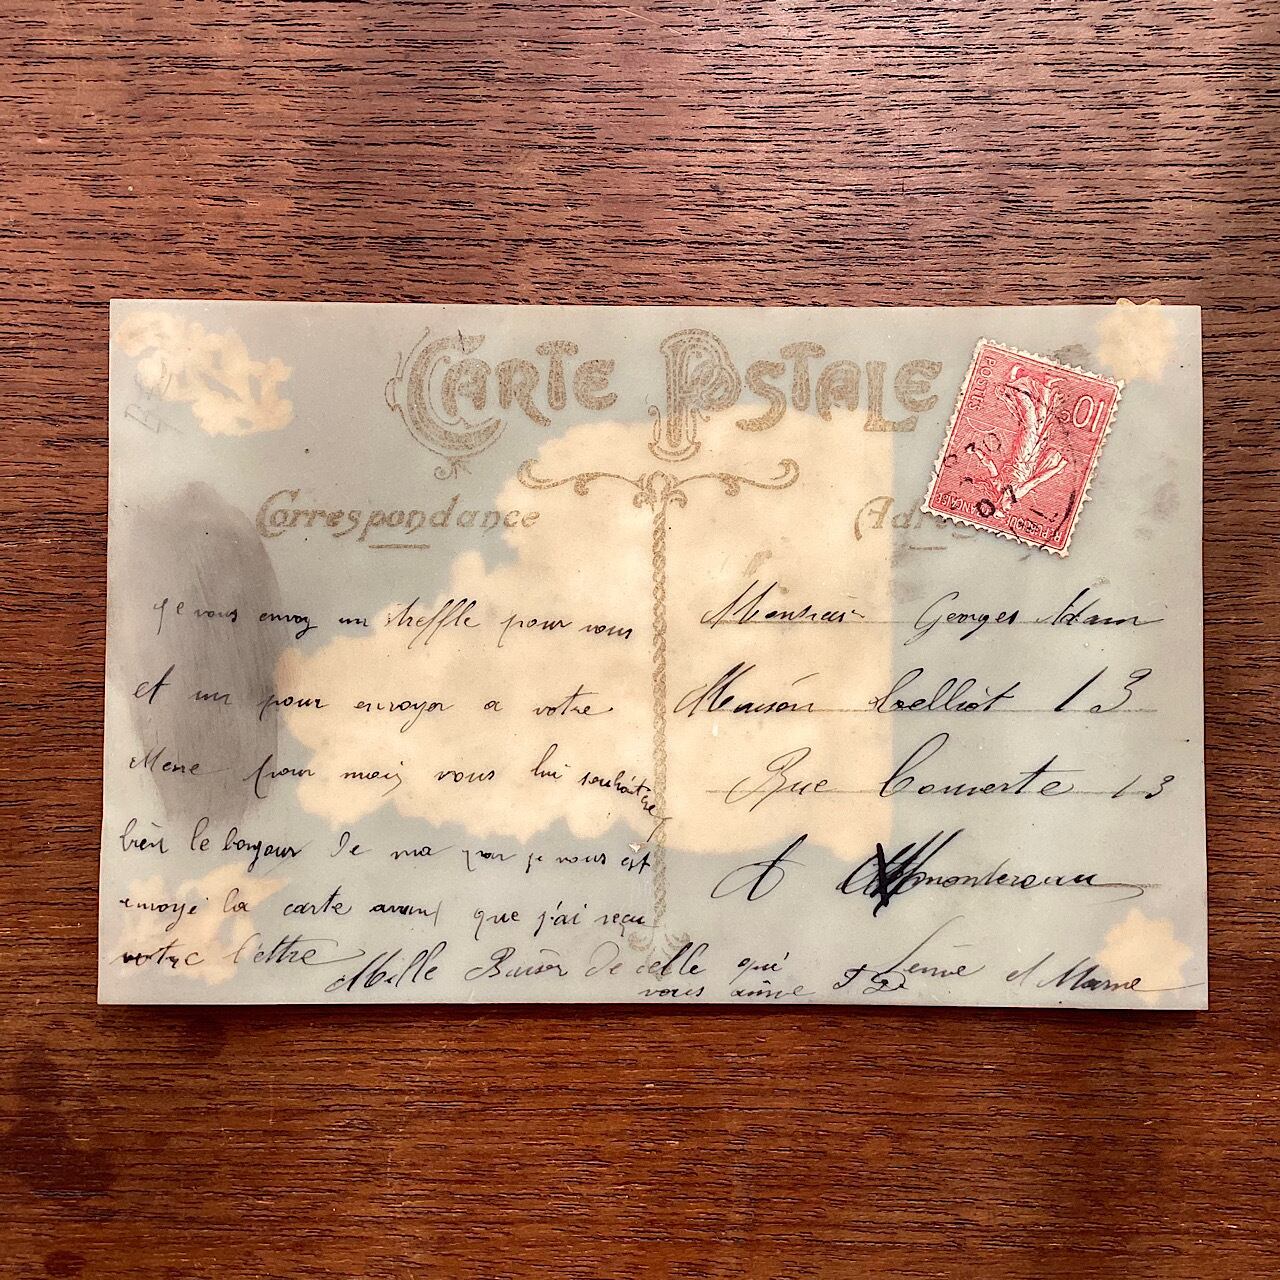 CARTE POSTALE
Correspondance
POSTES
10
REPUBLIQUE FRANÇAISE
30
07
je vous envoy un theffle pour vous
et un pour envoyer a votre
Mere pour moi vous lui souhaitre
bien le bonjour De ma par je vous est
envoyé la carte avant que j'ai reçu
votre l'éttre
Mille Baisér De celle qui
vous aime
Monsieir Georges Adam
Maison 13
Rue Couverte 13
A montereau
Seine et Marne